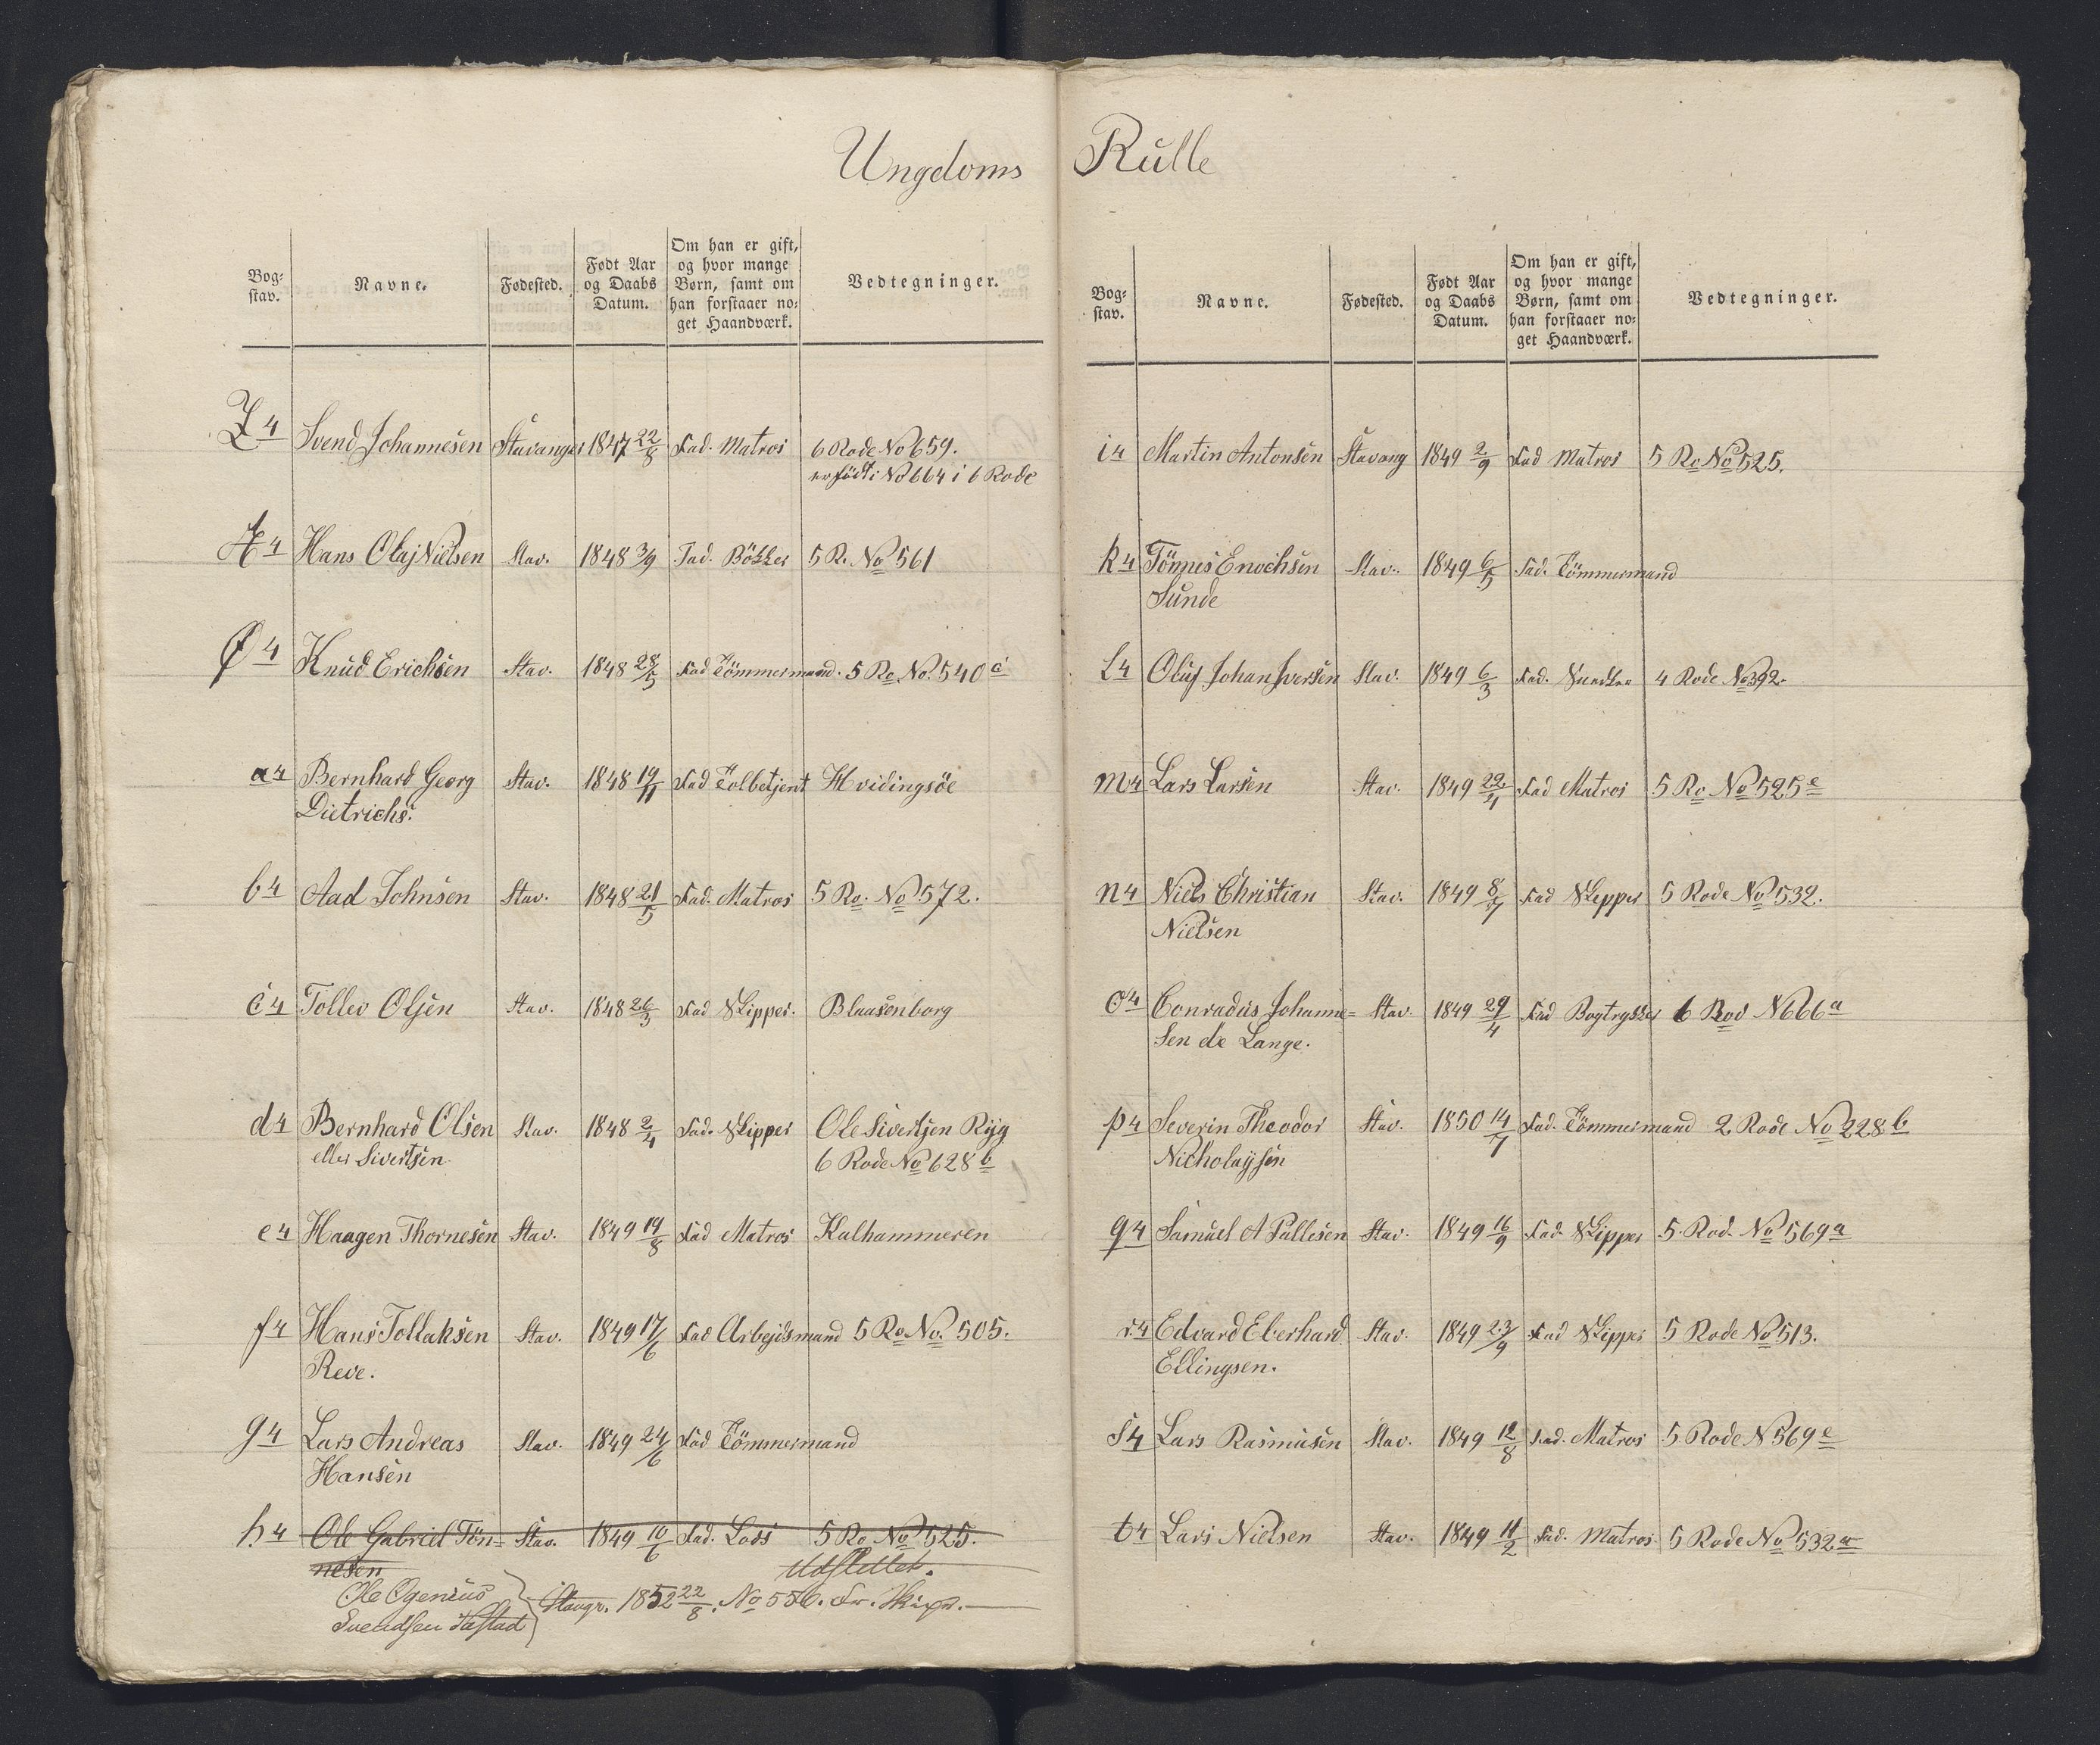 Ungdoms Rulle
Bog=
stav.
Navne.
Fødested.
Født Aar
og Daabs
Datum.
Om han er gift,
og hvor mange
Børn, samt om
han forstaaer no=
get Haandværk.
Vedtegninger.
Z 4 Svend Johannesen Stavanger 1847 22/8 Fad. Matros 6 Rode No 659.
er født i No 664 i 6 Rode
Æ 4 Hans Olaj Nielsen Stav. 1848 3/9 Fad. Bökker 5 R. No 561
Ø 4 Knud Erichsen Stav. 1848 28/5 Fad Tömmermand. 5 Ro No. 540 c
a 4 Bernhard Georg Stav. 1848 19/11 Fad Tolbetjent Hvidingsöe
Dietrichs.
b 4 Aad Johnsen Stav. 1848 21/5 Fad. Matros 5 Ro. No 572.
c 4 Tollev Olsen Stav. 1848 26/3 Fad Skipper. Blaasenborg
d 4 Bernhard Olsen Stav. 1848 2/4 Fad. Skipper Ole Sivertsen Ryg
eller Sivertsen 6 Rode No 628 b
e 4 Haagen Thornesen Stav. 1849 19/8 Fad Matros Kalhammeren
f 4 Hans Tollaksen Stav. 1849 17/6 Fad Arbejdsmand 5 Ro No. 505.
Reve.
g 4 Lars Andreas Stav. 1849 24/6 Fad Tömmermand
Hansen
h 4 Ole Gabriel Tön= Stav. 1849 10/6 Fad. Lods 5 Ro No 525.
nesen Udslettet.
Ole Ogenius Stavgr. 1852 22/8. No 556. Fr. Skipr.
Svendsen
Bog=
stav.
Navne.
Fødested.
Født Aar
og Daabs
Datum.
Om han er gift,
og hvor mange
Børn, samt om
han forstaaer no=
get Haandværk.
Vedtegninger.
i 4 Martin Antonsen Stavang 1849 2/9 Fad Matros 5 Ro No 525.
k 4 Tönnes Enochsen Stav. 1849 6/5 Fad. Tömmermand
Sunde
l 4 Oluf Johan Iversen Stav. 1849 6/3 Fad. Snedker 4 Rode No 392.
m 4 Lars Larsen Stav. 1849 22/4 Fad Matros 5 Ro No 525 e
n 4 Niels Christian Stav. 1849 8/7 Fad Skipper 5 Rode No 532.
Nielsen
o 4 Conradus Johanne= Stav. 1849 29/4 Fad Bogtrykker 6 Rod N 666 a
sen de Lange.
p 4 Severin Theodor Stav. 1850 14/7 Fad. Tömmermand 2 Rode No 228 b
Nicholaysen
q 4 Samuel A Pallesen Stav. 1849 16/9 Fad. Skipper 5. Rod. No 569 a
r 4 Edvard Eberhard Stav. 1849 23/9 Fad Skipper 5 Rode No 513.
Ellingsen.
s 4 Lars Rasmusen Stav. 1849 12/8 Fad. Matros 5 Rode N 569 e
t 4 Lars Nielsen Stav. 1849 11/2 Fad. Matros 5 Rode No 532 a